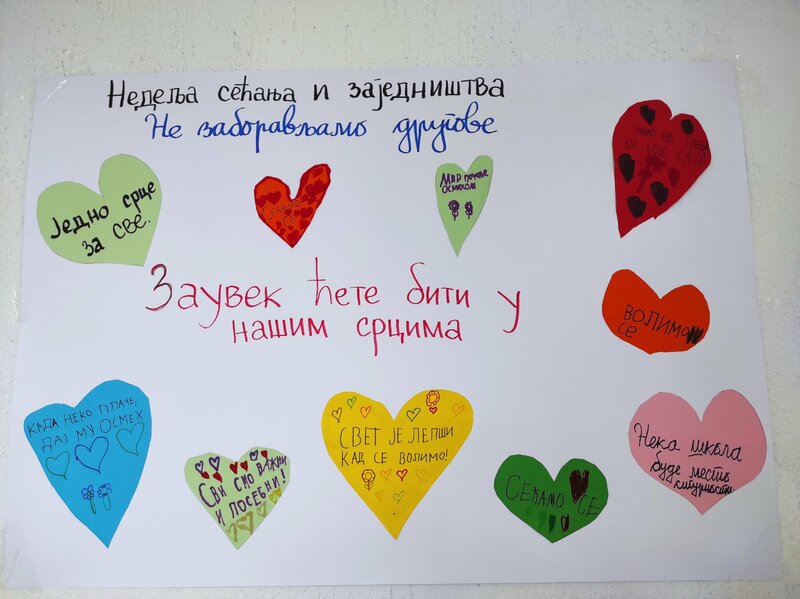 Недеља сећања и заједништва
Не заборављамо другове
Једно срце
за све.
СЕЋАМО
СЕ
Мир почиње
осмехом
НИКО НЕ ТРЕБА
ДА БУДЕ САМ
Заувек ћете бити у
нашим срцима
ВОЛИМО
СЕ
КАДА НЕКО ПЛАЧЕ,
ДАЈ МУ ОСМЕХ
СВИ СМО ВАЖНИ
И ПОСЕБНИ!
СВЕТ ЈЕ ЛЕПШИ
КАД СЕ ВОЛИМО!
СЕЋАМО СЕ
Нека школа
буде место
сигурности